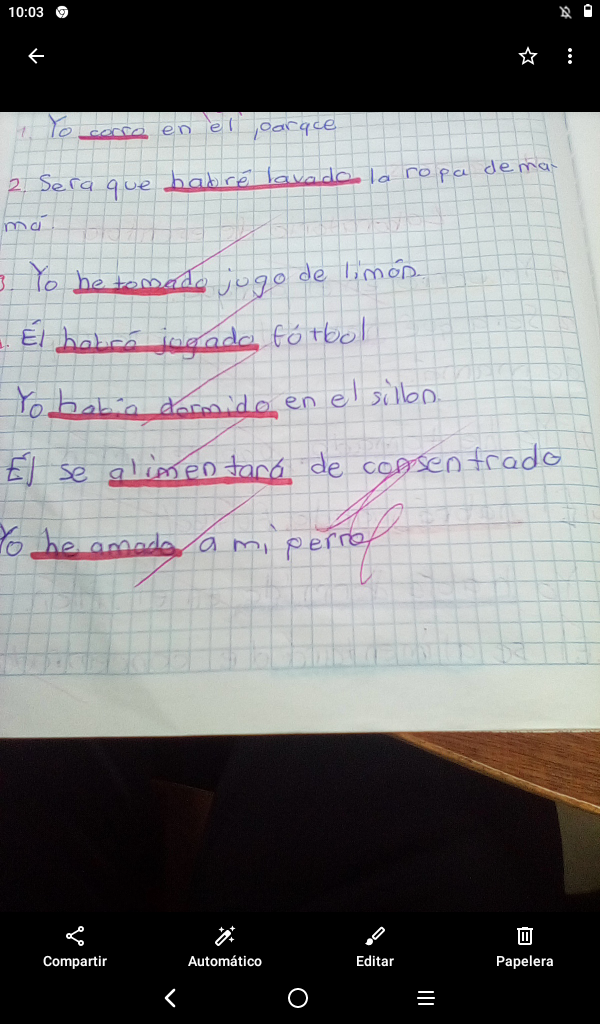 10:03
1. Yo corro en el parque
2. Sera que habré lavado la ropa de ma-
má
3. Yo he tomado jugo de limón.
. Él habrá jugado fótbol
Yo había dormido en el sillon.
Él se alimentará de consentrado
Yo he amado a mi perro
Compartir
Automático
Editar
Papelera